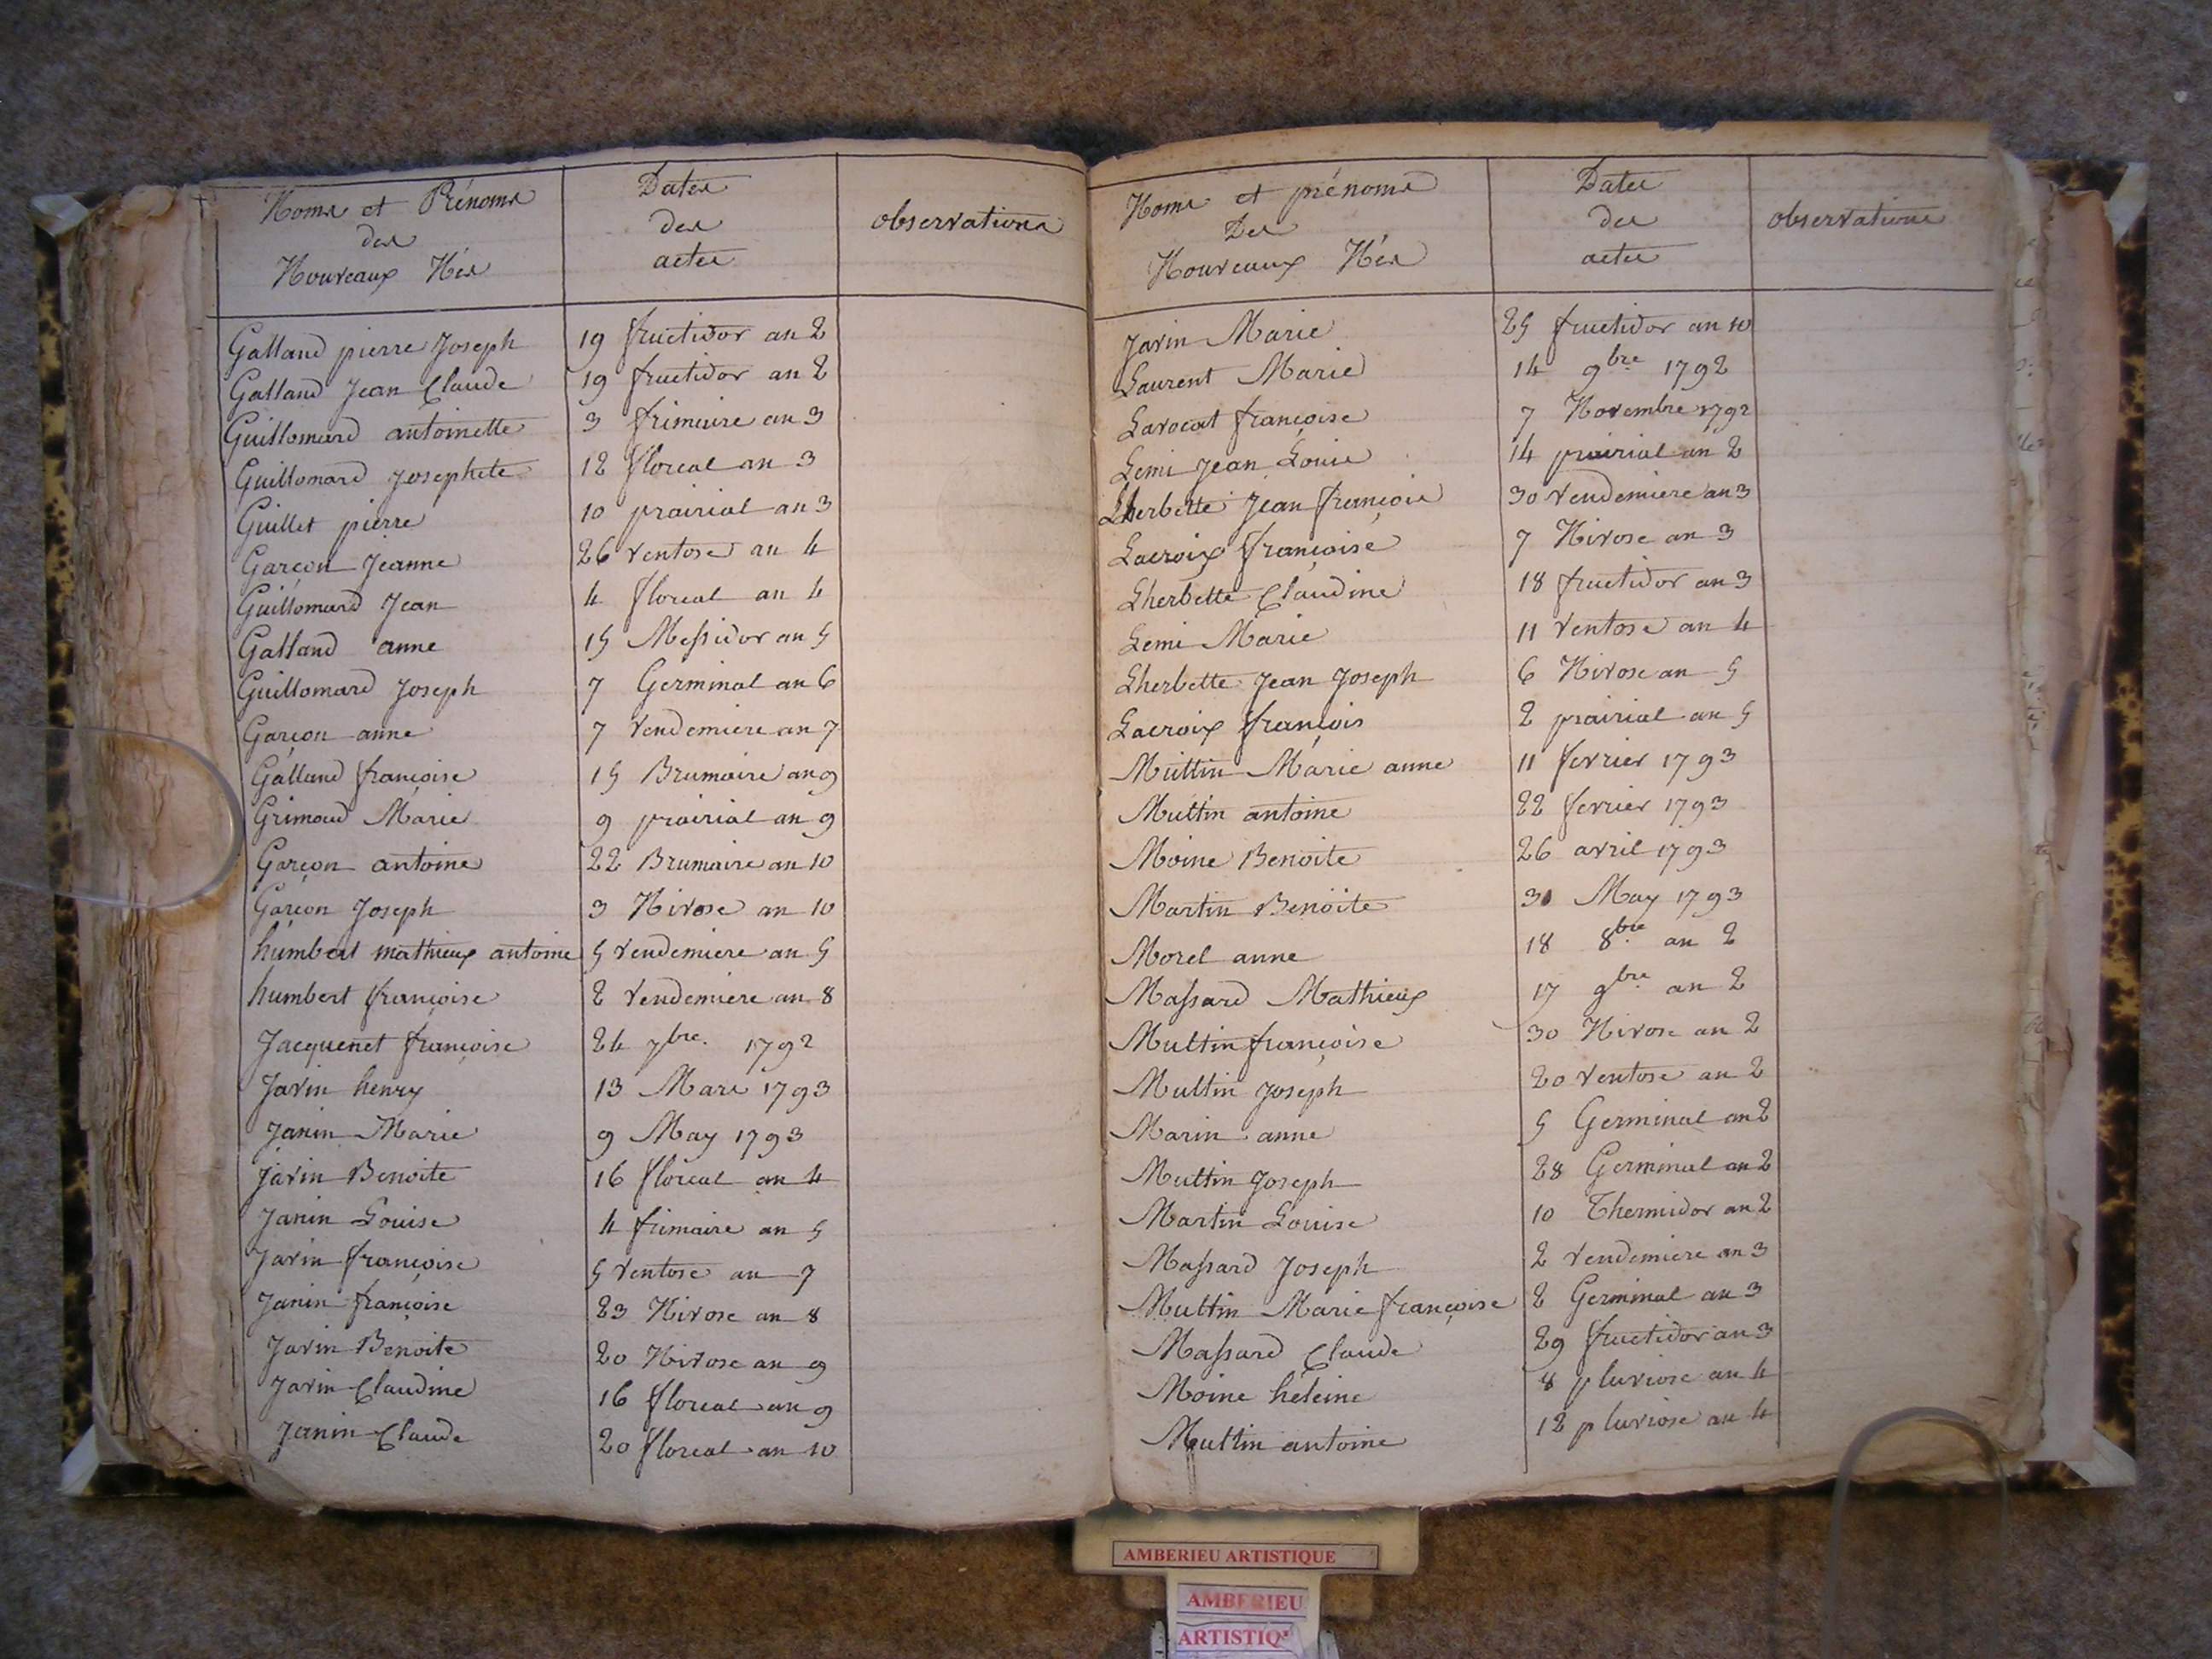 Noms et Prénoms
des
Nouveaux Nés
Dates
des
actes
observations
Galland pierre Joseph 19 fructidor an 2
Galland Jean Claude 19 fructidor an 2
Guillomard antoinette 3 frimaire an 3
Guillomard Josephete 12 floreal an 3
Guillet pierre 10 prairial an 3
Garçon Jeanne 26 ventose an 4
Guillomard Jean 4 floreal an 4
Galland anne 15 Messidor an 5
Guillomard Joseph 7 Germinal an 6
Garçon anne 7 vendemiere an 7
Galland françoise 15 Brumaire an 9
Grimaud Marie 9 prairial an 9
Garçon antoine 22 Brumaire an 10
Garçon Joseph 3 Nivose an 10
humbert mathieux antoine 5 vendemiere an 5
humbert françoise 2 vendemiere an 8
Jacquenet françoise 24 7bre. 1792
Jarin henry 13 Mars 1793
Janin Marie 9 May 1793
Jarin Benoite 16 floreal an 4
Janin Louise 4 frimaire an 5
Jarin françoise 5 ventose an 7
Janin françoise 23 Nivose an 8
Jarin Benoite 20 Nivose an 9
Jarin Claudine 16 floreal an 9
Janin Claude 20 floreal an 10
Noms et prénoms
Des
Nouveaux Nés
Dates
des
actes
observations
Jarin Marie 25 fructidor an 10
Laurent Marie 14 9bre 1792
Lavocat françoise 7 Novembre 1792
Lemi Jean Louis 14 prairial an 2
Lherbette Jean françois 30 vendemiere an 3
Lacroix françoise 7 Nivose an 3
Lherbette Claudine 18 fructidor an 3
Lemi Marie 11 ventose an 4
Lherbette Jean Joseph 6 Nivose an 5
Lacroix françois 2 prairial an 5
Multin Marie anne 11 fevrier 1793
Multin antoine 22 fevrier 1793
Moine Benoite 26 avril 1793
Martin Benoite 31 May 1793
Morel anne 18 8bre an 2
Massard Mathieux 17 9bre an 2
Multin françoise 30 Nivose an 2
Multin Joseph 20 ventose an 2
Marin anne 5 Germinal an 2
Multin Joseph 28 Germinal an 2
Martin Louise 10 Thermidor an 2
Massard Joseph 2 vendemiere an 3
Multin Marie françoise 2 Germinal an 3
Massard Claude 29 fructidor an 3
Moine héleine 8 pluviose an 4
Multin antoine 12 pluviose an 4
AMBERIEU ARTISTIQUE
AMBERIEU
ARTISTIQ